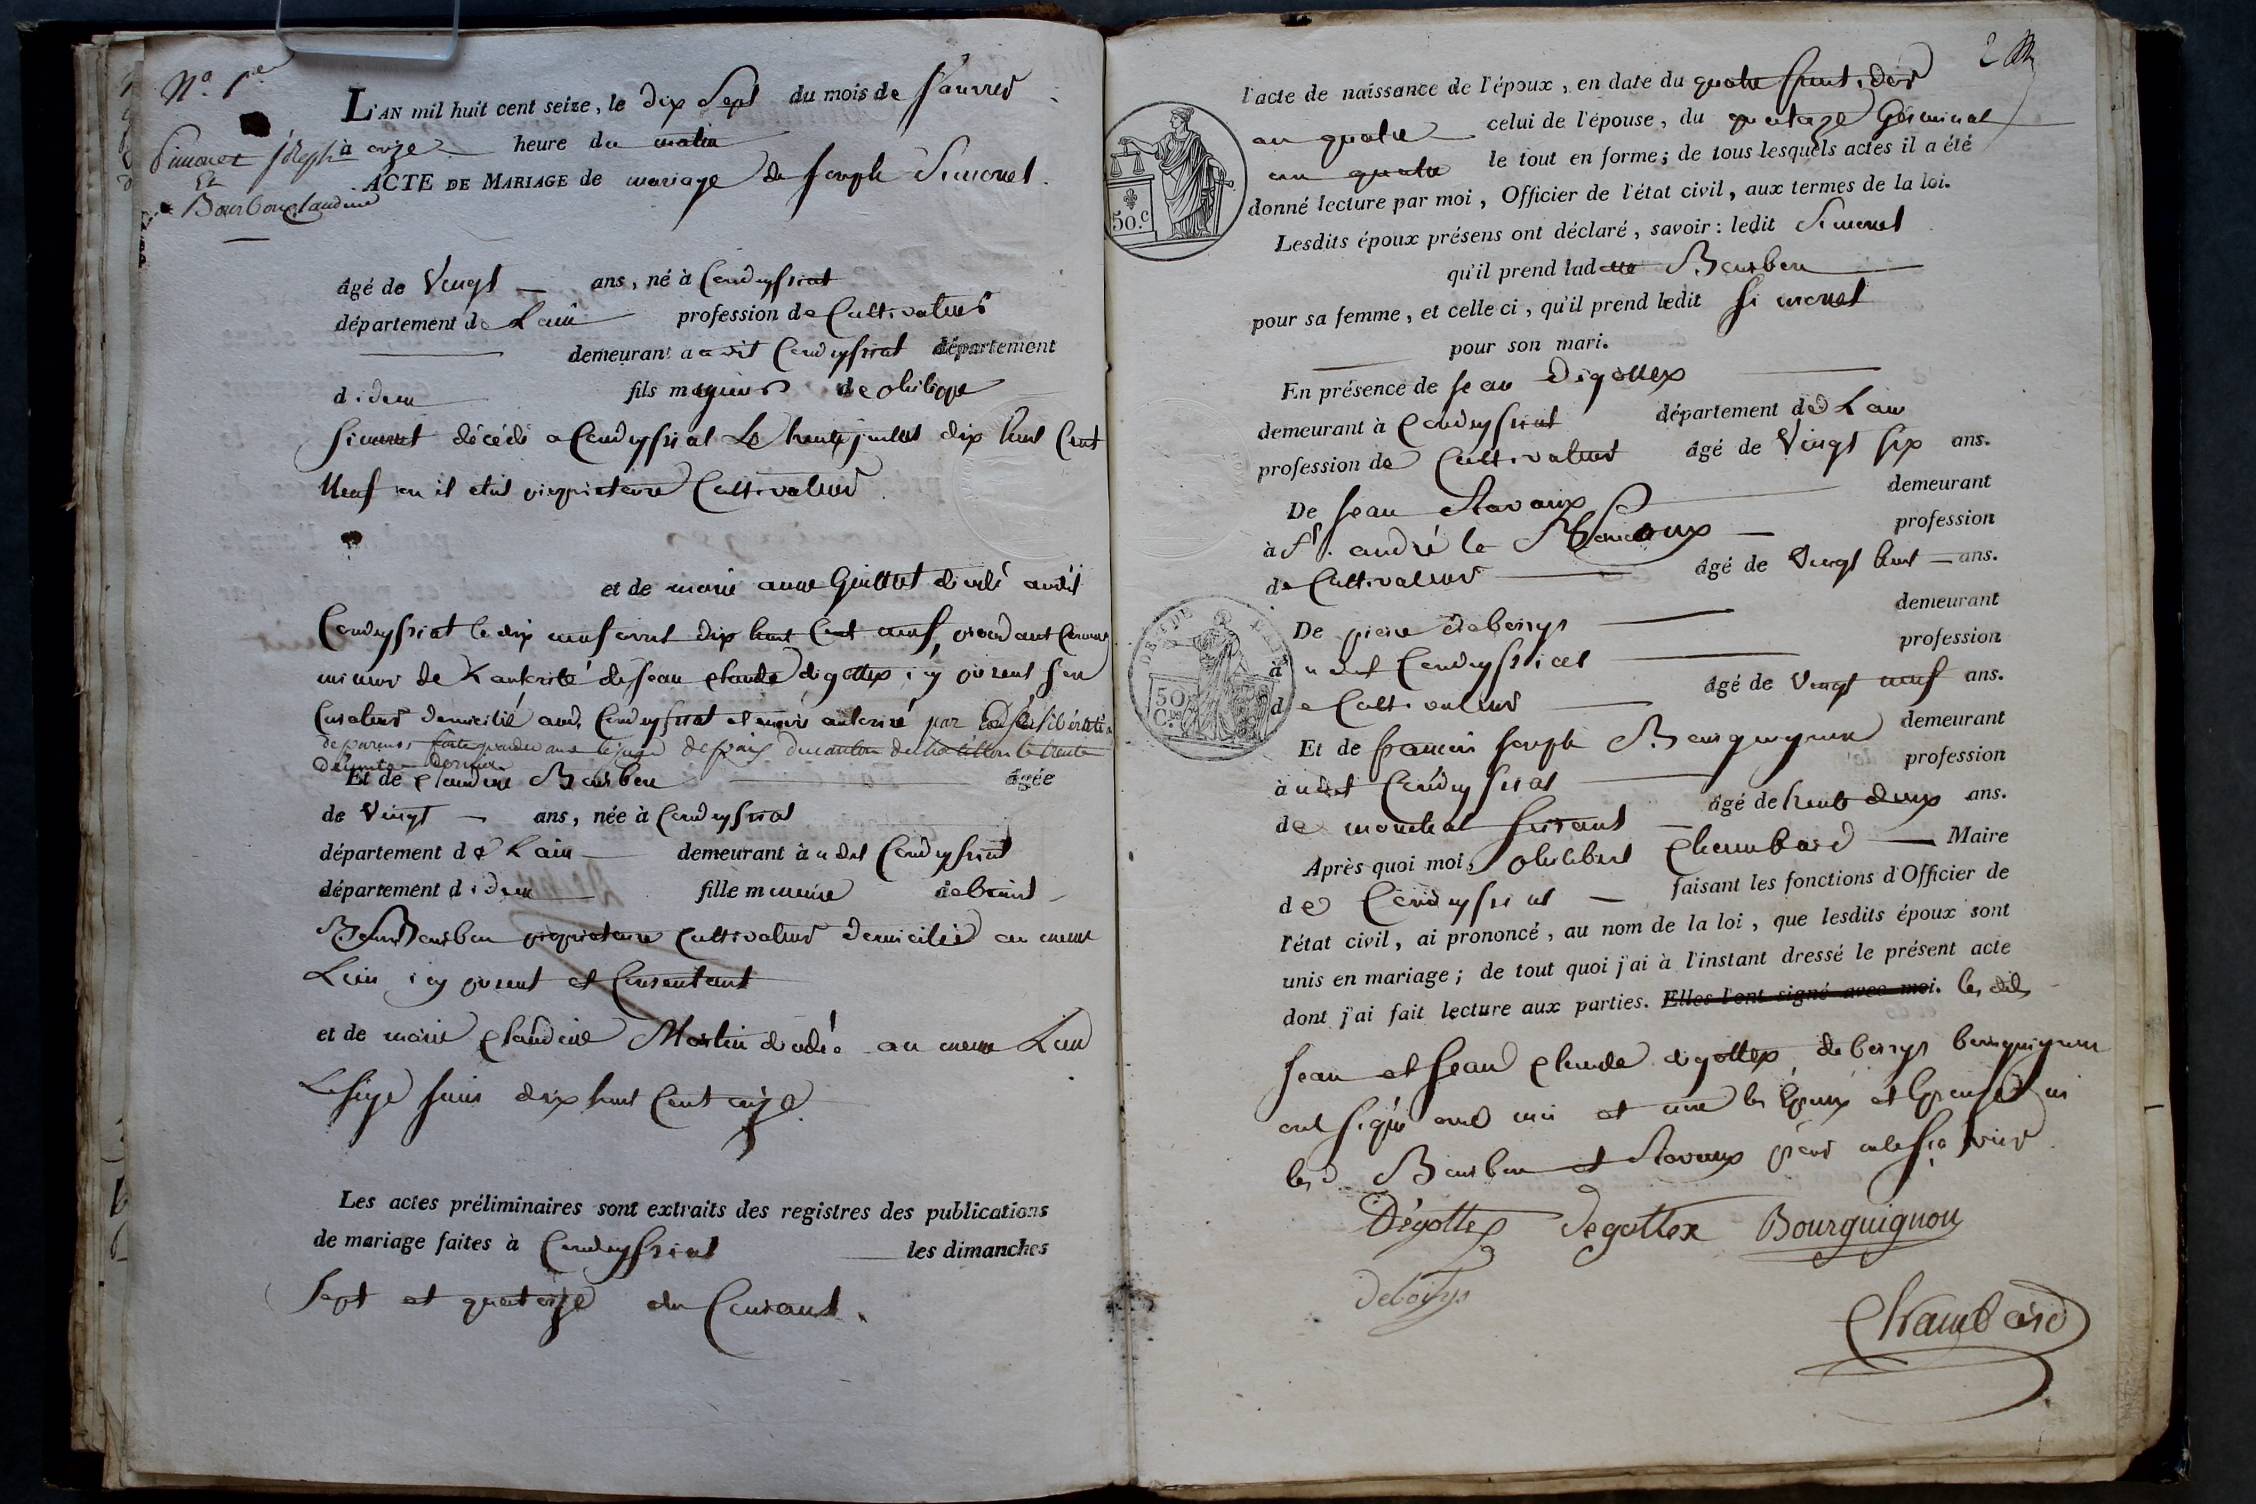 Nº 1er
Simonet Joseph
Et
Bourbon Claudine
L'AN mil huit cent seize, le dix Sept du mois de Janvier
à onze heure du matin
ACTE DE MARIAGE de mariage de Joseph Simonet
âgé de Vingt ans, né à Condeyssiat
département de Lain profession de Cultivateur
demeurant audit Condeyssiat département
didem fils mineur de philippe
Simonet décédé a Condeyssiat Le trente juillet dix huit Cent
Neuf ou il etait proprietaire Cultivateur
et de marie anne Guillet décédé audit
Condeyssiat le dix neuf avril dix huit Cent neuf, procedant Comme
mineur de Lautorité de Jean Claude digottex icy present Son
Curateur domicilié aud. Condeyssiat et marie autorisé par délibération
de parens faite pardevant le juge de paix du canton de Chatillon le trente
Et de Claudine Bourbon âgée
de Vingt ans, née à Condeyssiat
département de Lain demeurant à udit Condeyssiat
département didem fille mineure de benoit
Bourbon proprietaire Cultivateur domicilié au meme
Lieu icy present et Consentant
et de marie Claudine Martin décédée au meme Lieu
Le Seize dix huit Cent onze
Les actes préliminaires sont extraits des registres des publications
de mariage faites à Condeyssiat les dimanches
Sept et quatorze du Courant.
2
l'acte de naissance de l'époux, en date du quatre
an quatre celui de l'épouse, du quatorze Germinal
an quatre le tout en forme; de tous lesquels actes il a été
donné lecture par moi, Officier de l'état civil, aux termes de la loi.
50.c
Lesdits époux présens ont déclaré, savoir: ledit Simonet
qu'il prend ladite Bourbon
pour sa femme, et celle ci, qu'il prend ledit Simonet
pour son mari.
En présence de Jean Digottex
demeurant à Condeyssiat département de Lain
profession de Cultivateur âgé de Vingt six ans.
De Jean Ravaux demeurant
à St. andré le Bouchoux profession
de Cultivateur âgé de Vingt huit ans.
De pierre deborys demeurant
à udit Condeyssiat profession
de Cultivateur âgé de Vingt neuf ans.
50 C.
Et de francois Joseph Bourguignon demeurant
à udit Condeyssiat profession
de marechal ferrant âgé de trente deux ans.
Après quoi moi, philibert Chambard Maire
de Condeyssiat faisant les fonctions d'Officier de
l'état civil, ai prononcé, au nom de la loi, que lesdits époux sont
unis en mariage; de tout quoi j'ai à l'instant dressé le présent acte
dont j'ai fait lecture aux parties. Elles l'ont signé avec moi. les dits
Jean et Jean Claude digottex, deborys bourguignon
ont Signé avec moi et non les Epoux et Epouse ni
les d. Bourbon et Ravaux pour ne le Savoir
Dégottex Degottex Bourguignon
deborys
Chambard